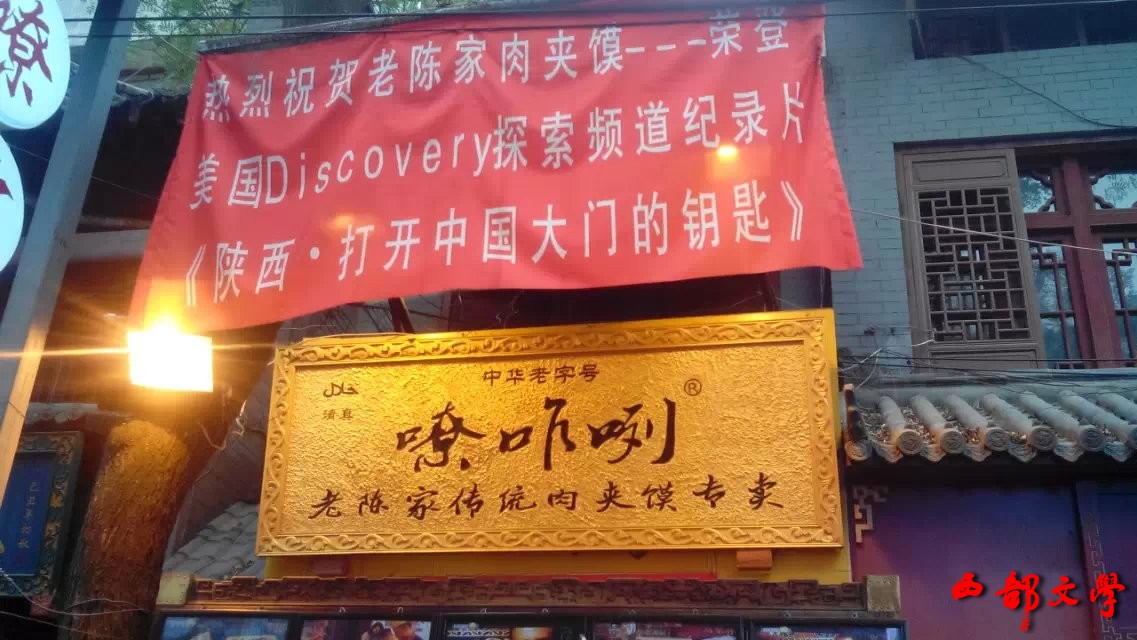 热烈祝贺老陈家肉夹馍---荣登
美国Discovery探索频道纪录片
《陕西·打开中国大门的钥匙》
中华老字号
®
حلال
清真
嘹咋咧
老陈家传统肉夹馍专卖
嘹
西部文學